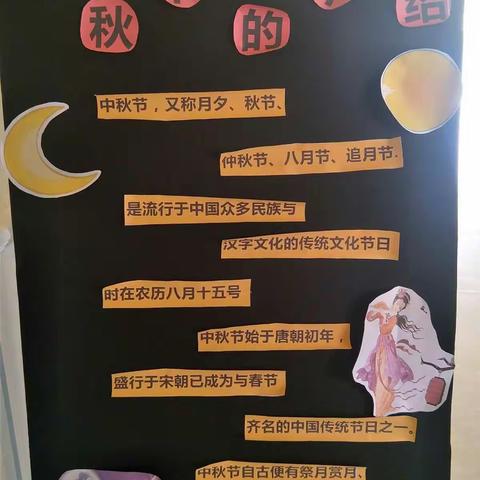 秋的
绍
中秋节，又称月夕、秋节、
仲秋节、八月节、追月节.
是流行于中国众多民族与
汉字文化的传统文化节日
时在农历八月十五号
中秋节始于唐朝初年，
盛行于宋朝已成为与春节
齐名的中国传统节日之一。
中秋节自古便有祭月赏月、